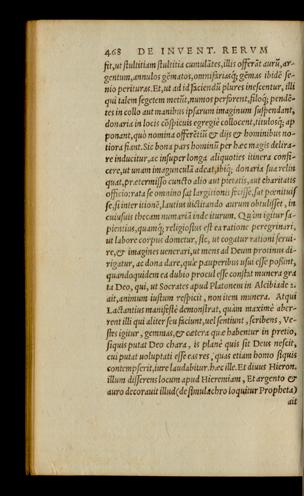 468 DE INVENT. RERVM
fit, ut stultitiam stultitia cumulātes, illis offerāt aurū, ar-
gentum, annulos gēmatos, omnifariasq́; gēmas ibidē se-
nio perituras. Et, ut ad id faciendū plures inescentur, illi
qui talem segetem metūt, numos perforent, filoq́; pendē-
tes in collo aut manibus ipsarum imaginum suspendant,
donaria in locis cōspicuis egregiè collocent, titulosq́; ap
ponant, quò nomina offerētiū & dijs & hominibus no-
tiora fiant. Sic bona pars hominū per hæc magis delira-
re inducitur, ac insuper longa aliquoties itinera confi-
cere, ut unam imagunculā adeat, ibiq́; donaria sua relin
quat, prætermisso cuncto alio aut pietatis, aut charitatis
officio: rata se omnino sat largitionis fecisse, sat pœnituis
se, si inter itionē, lautius uictitando aurum obtulisset, in
cuiusuis thecam numariā inde iturum. Quin igitur sa-
pientius, quamq́; religiosius est ea ratione peregrinari,
ut labore corpus dometur, sic, ut cogatur rationi serui-
re, & imagines uenerari, ut mens ad Deum protinus di-
rigatur, ac dona dare, quæ pauperibus usui esse possint,
quandoquidem ea dubio procul esse constat munera gra
ta Deo, qui, ut Socrates apud Platonem in Alcibiade 2.
ait, animum iustum respicit, non item munera. Atqui
Lactantius manifestè demonstrat, quàm maximè aber-
rent illi qui aliter seu faciunt, uel sentiunt, scribens, Ve-
stes igitur, gemmas, & cætera quæ habentur in pretio,
siquis putat Deo chara, is planè quis sit Deus nescit,
cui putat uoluptati esse eas res, quas etiam homo siquis
contempserit, iure laudabitur. hæc ille. Et diuus Hieron.
illum differens locum apud Hieremiam, Et argento &
auro decorauit illud (de simulachro loquitur Propheta)
ait